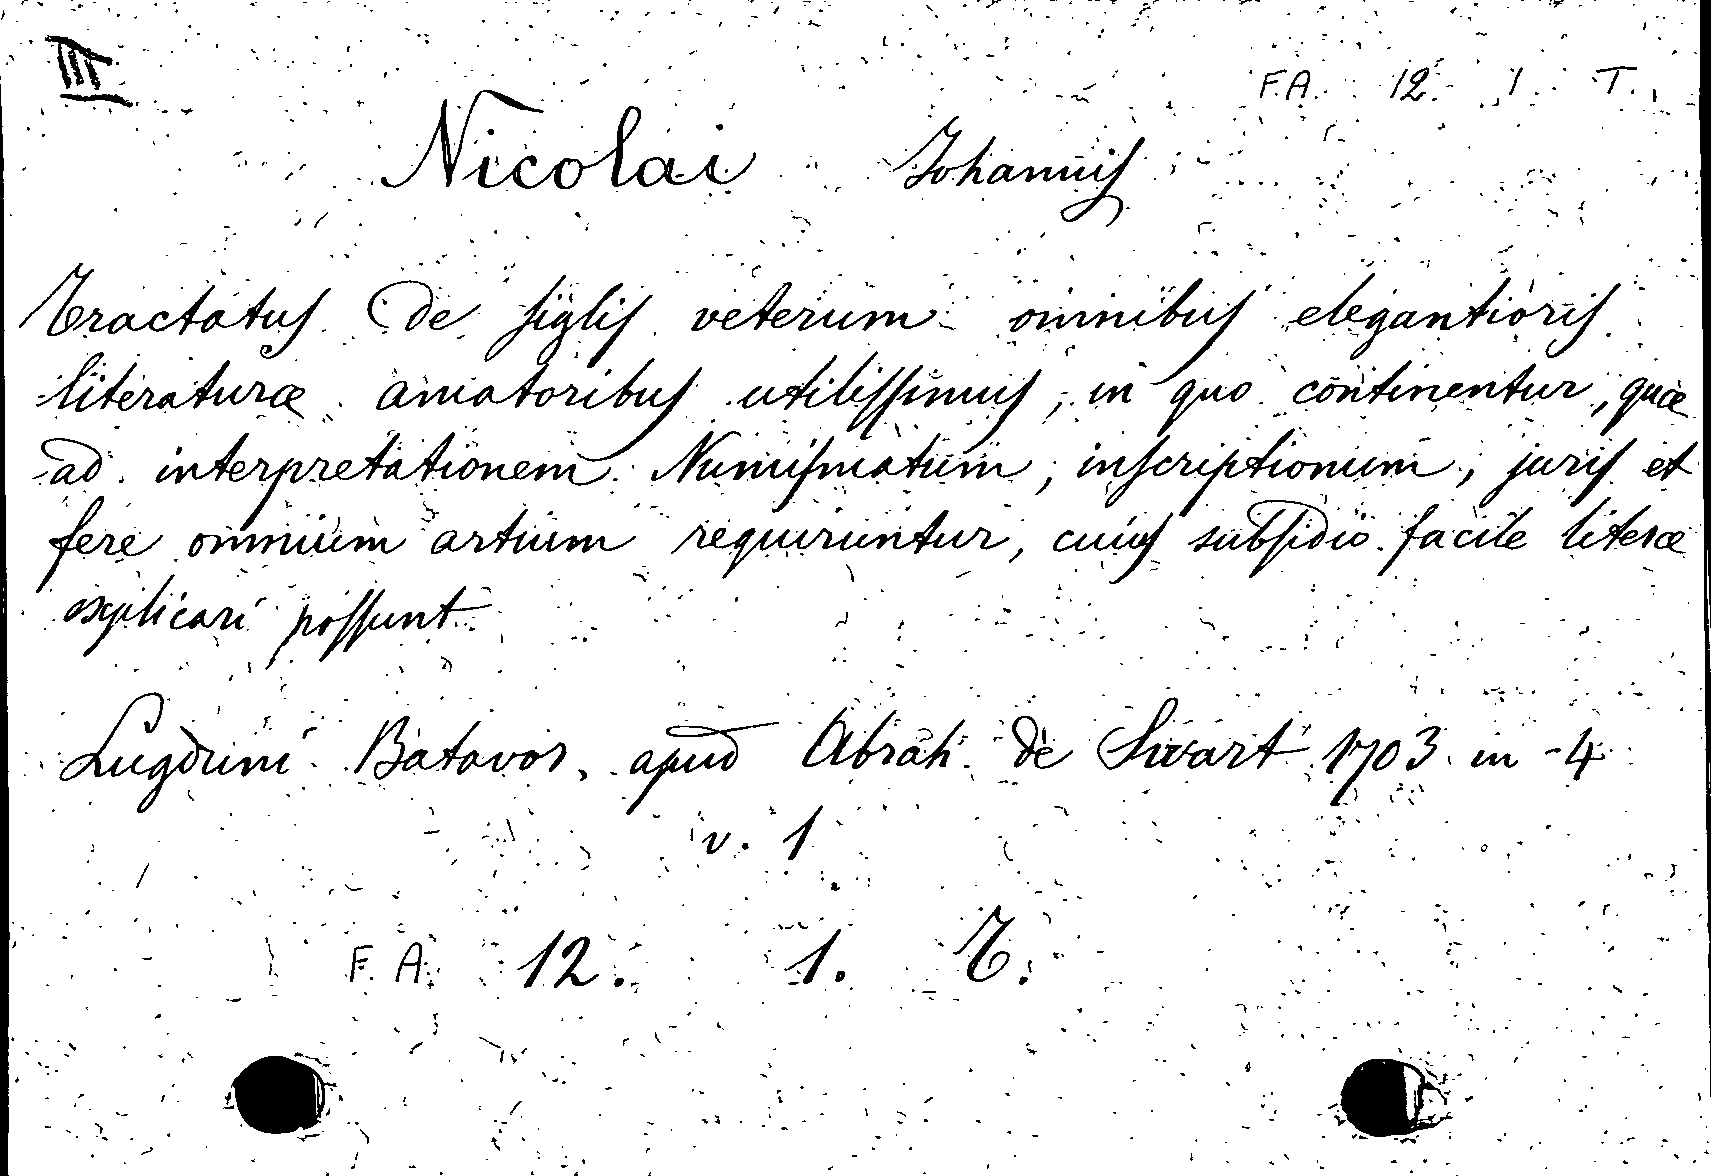 III
F.A. 12. 1. T.
Nicolai Johannis
Tractatus de siglis veterum omnibus elegantioris
literaturæ amatoribus utilissimus, in quo continentur, quæ
ad interpretationem Numismatum, inscriptionum, juris et
fere omnium artium requiruntur, cuius subsidio facile literæ
explicari possunt
Lugduni Batavor. apud Abrah. de Swart 1703 in -4
v. 1
F. A. 12. 1. T.